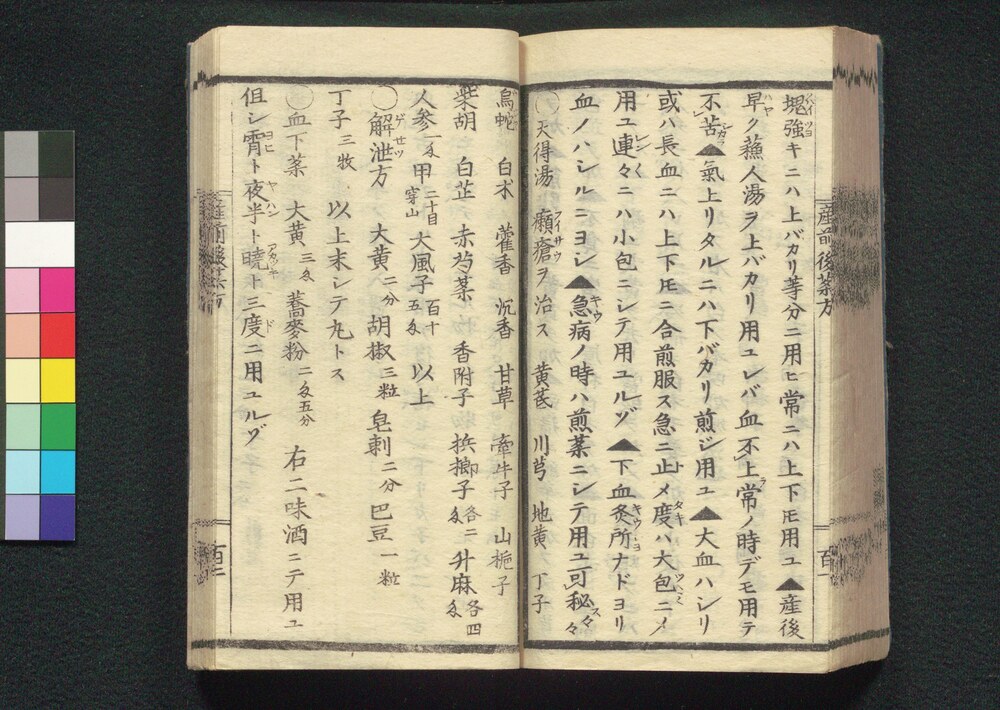 塊強キニハ上バカリ等分ニ用ヒ常ニハ上下𪜈用ユ▲産後
早ク蘓人湯ヲ上バカリ用ユレバ血不上常ノ時デモ用テ
不苦▲氣上リタルニハ下バカリ煎ジ用ユ▲大血ハシリ
或ハ長血ニハ上下𪜈ニ合煎服ス急ニ止メ度ハ大包ニメ
用ユ連々ニハ小包ニシテ用ユルゾ▲下血灸所ナドヨリ
血ノハシルニヨシ▲急病ノ時ハ煎薬ニシテ用ユ可秘々々
○天得湯 癩瘡ヲ治ス 黄芪 川芎 地黄 丁子
烏蛇 白朮 藿香 沉香 甘草 牽牛子 山梔子
柴胡 白芷 赤芍薬 香附子 梹榔子各二匁 升麻各四匁
人参一匁 甲二十目穿山 大風子百十五匁 以上
○解泄方 大黄二分 胡椒三粒 皂刺二分 巴豆一粒
丁子三牧 以上末シテ丸トス
○血下薬 大黄三匁 蕎麥粉二匁五分 右二味酒ニテ用ユ
但シ霄ト夜半ト曉ト三度ニ用ユルゾ
産前後薬方